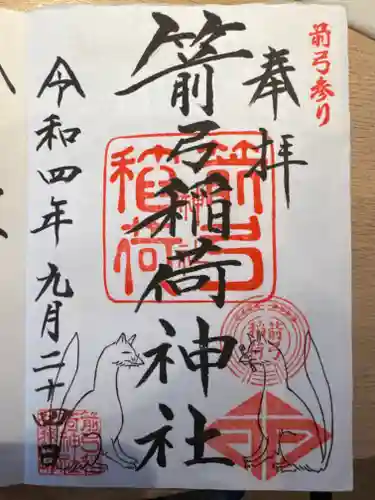 箭弓参り
奉拝
箭弓稲荷神社
令和四年九月二十四日
箭弓
稲荷